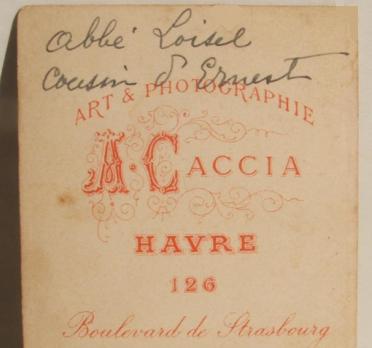 Abbé Loisel
Cousin d'Ernest
ART & PHOTOGRAPHIE
A. CACCIA
HAVRE
126
Boulevard de Strasbourg